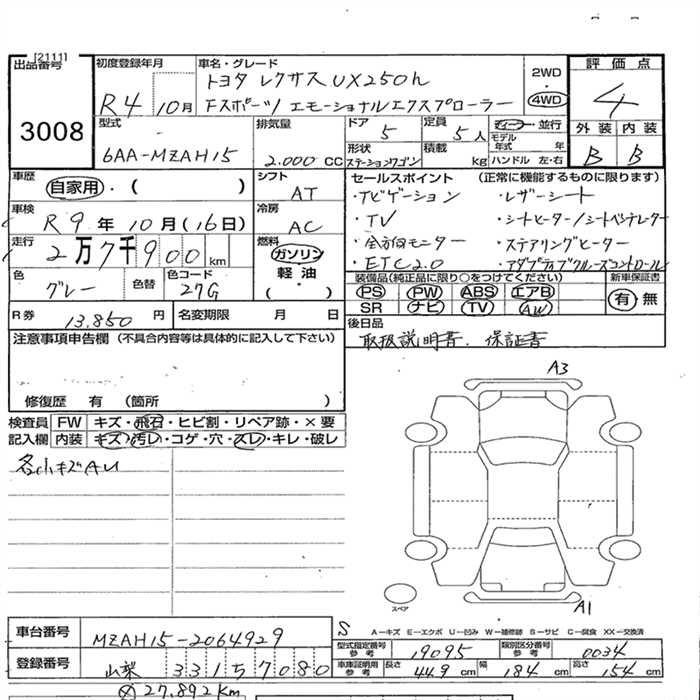 [2111]
出品番号
3008
初度登録年月
R4 10月
車名・グレード
トヨタ レクサス UX250h
Fスポーツ/エモーショナルエクスプローラー
2WD
・
4WD
評価点
4
外装 内装
B B
型式
6AA-MZAH15
排気量
2.000 CC
ドア
5
定員
5人
形状
ステーションワゴン
積載
kg
ディーラー・並行
モデル
年式 年
ハンドル 左・右
車歴
自家用・( )
シフト
AT
車検
R9年10月(16日)
冷房
AC
走行
2万7千900km
燃料
ガソリン
軽油
( ・ )
色
グレー
色替
色コード
27G
R券
13,850円
名変期限 月 日
セールスポイント (正常に機能するものに限ります)
・ナビゲーション ・レザーシート
・TV ・シートヒーター/シートベンチレーター
・全方向モニター ・ステアリングヒーター
・ETC2.0 ・アダプティブクルーズコントロール
装備品(純正品に限り○をつけてください)
PS PW ABS エアB
SR ナビ TV AW
新車保証書
有・無
後日品
取扱説明書、保証書
注意事項申告欄(不具合内容等は具体的に記入して下さい)
修復歴 有 (箇所 )
検査員
記入欄
FW キズ・飛石・ヒビ割・リペア跡・×要
内装 キズ・汚レ・コゲ・穴・スレ・キレ・破レ
各小キズAU
A3
スペア
A1
S
A-キズ E-エクボ U-凹み W-補修跡 S-サビ C-腐食 XX-交換済
車台番号
MZAH15-2064929
登録番号
山梨 331す7080
型式指定番号
参考
19095
類別区分番号
参考
0034
車庫証明用
参考
長さ 449cm 幅 184cm 高さ 154cm
⊗27,892km